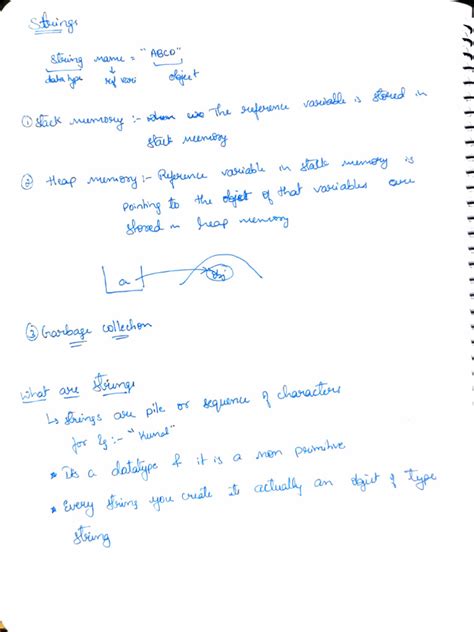 Strings
String name = "ABCD"
datatype ref vari object
① Stack memory :- The reference variable is stored in
stack memory
② Heap memory :- Reference variable in stack memory is
pointing to the object of that variables are
stored in heap memory
a obj
③ Garbage collection
What are Strings
↳ strings are pile or sequence of characters
for Eg :- "Kunal"
* Its a datatype & it is a non primitive
* Every string you create its actually an object of type
string